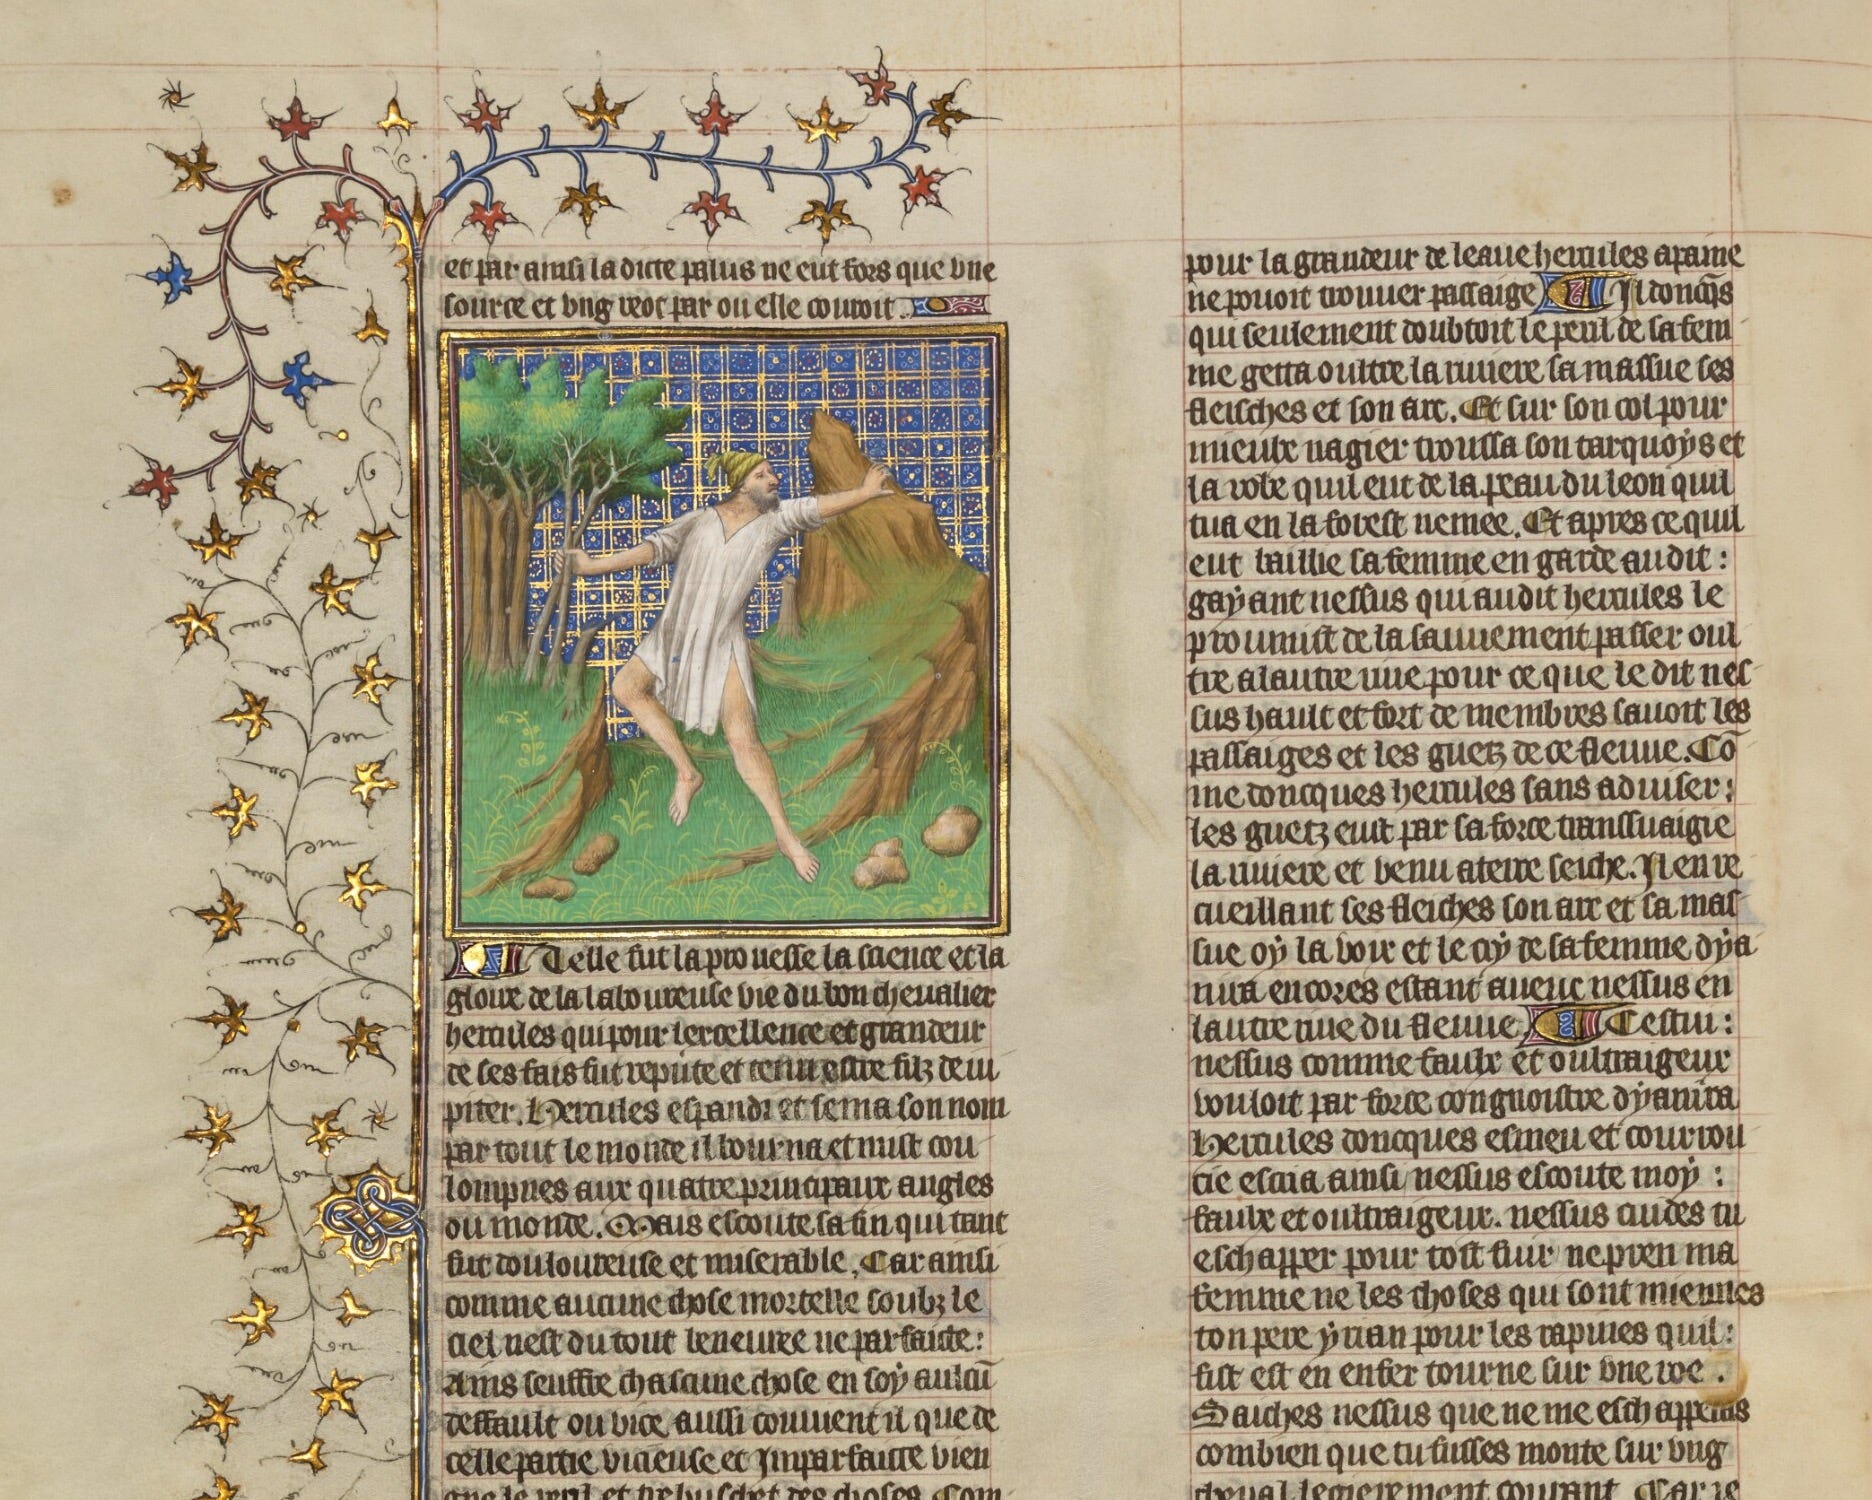 et par ainsi la dicte palus ne eut fors que vne
source et vng
par ou elle couroit.
Telle fut la prouesse la science et la
gloire de la laboureuse vie du bon cheualier
hercules qui pour lexcellence et grandeur
de ses fais fut repute et tenu estre filz de iu
piter. Hercules espandi et sema son nom
par tout le monde il bourna et mist cou
lompnes aux quatre principaux angles
du monde. Mais escoute sa fin qui tant
fut douloureuse et miserable. Car ainsi
comme aucune chose mortelle soubz le
ciel nest du tout beneuree ne parfaicte:
Ains seuffre chascune chose en soy aulcū
deffault ou vice aussi conuient il que de
celle partie vicieuse et Imparfaicte vien
gne le peril et trebuschet des choses. Com
pour la grandeur de leaue hercules apaine
ne pouoit trouuer passaige Il doncq̄s
qui seulement doubtoit le peril de sa fem
me getta oultre la riuiere sa massue ses
fleisches et son arc. Et sur son col pour
mieulx nagier troussa son tarquoys et
la robe quil eut de la peau du leon quil
tua en la forest nemee. Et apres ce quil
eut baillie sa femme en garde audit:
gayant nessus qui audit hercules le
promist de la sauuement passer oul
tre a lautre riue pour ce que le dit nes
sus hault et fort de membres sauoit les
passaiges et les guetz de ce fleuue. Cō
me doncques hercules sans aduiser:
les guetz eut par sa force transnaigie
la riuiere et venu a terre seiche. Il en re
cueillant ses fleiches son arc et sa mas
sue oy la voix et le cry de sa femme dya
nira encores estant auec nessus en
lautre riue du fleuue. Cestui:
nessus comme faulx et oultraigeux
vouloit par force congnoistre dyanira
Hercules doncques esmeu et courrou
cie escria ainsi nessus escoute moy:
faulx et oultraigeur. nessus cuides tu
eschapper pour tost fuir ne pren ma
femme ne les choses qui sont miennes
ton pere yxian pour les rapines quil:
fist est en enfer tourne sur vne roe.
Saiches nessus que ne me eschapperas
combien que tu fusses monte sur vng
cheual legierement courant. Car ie